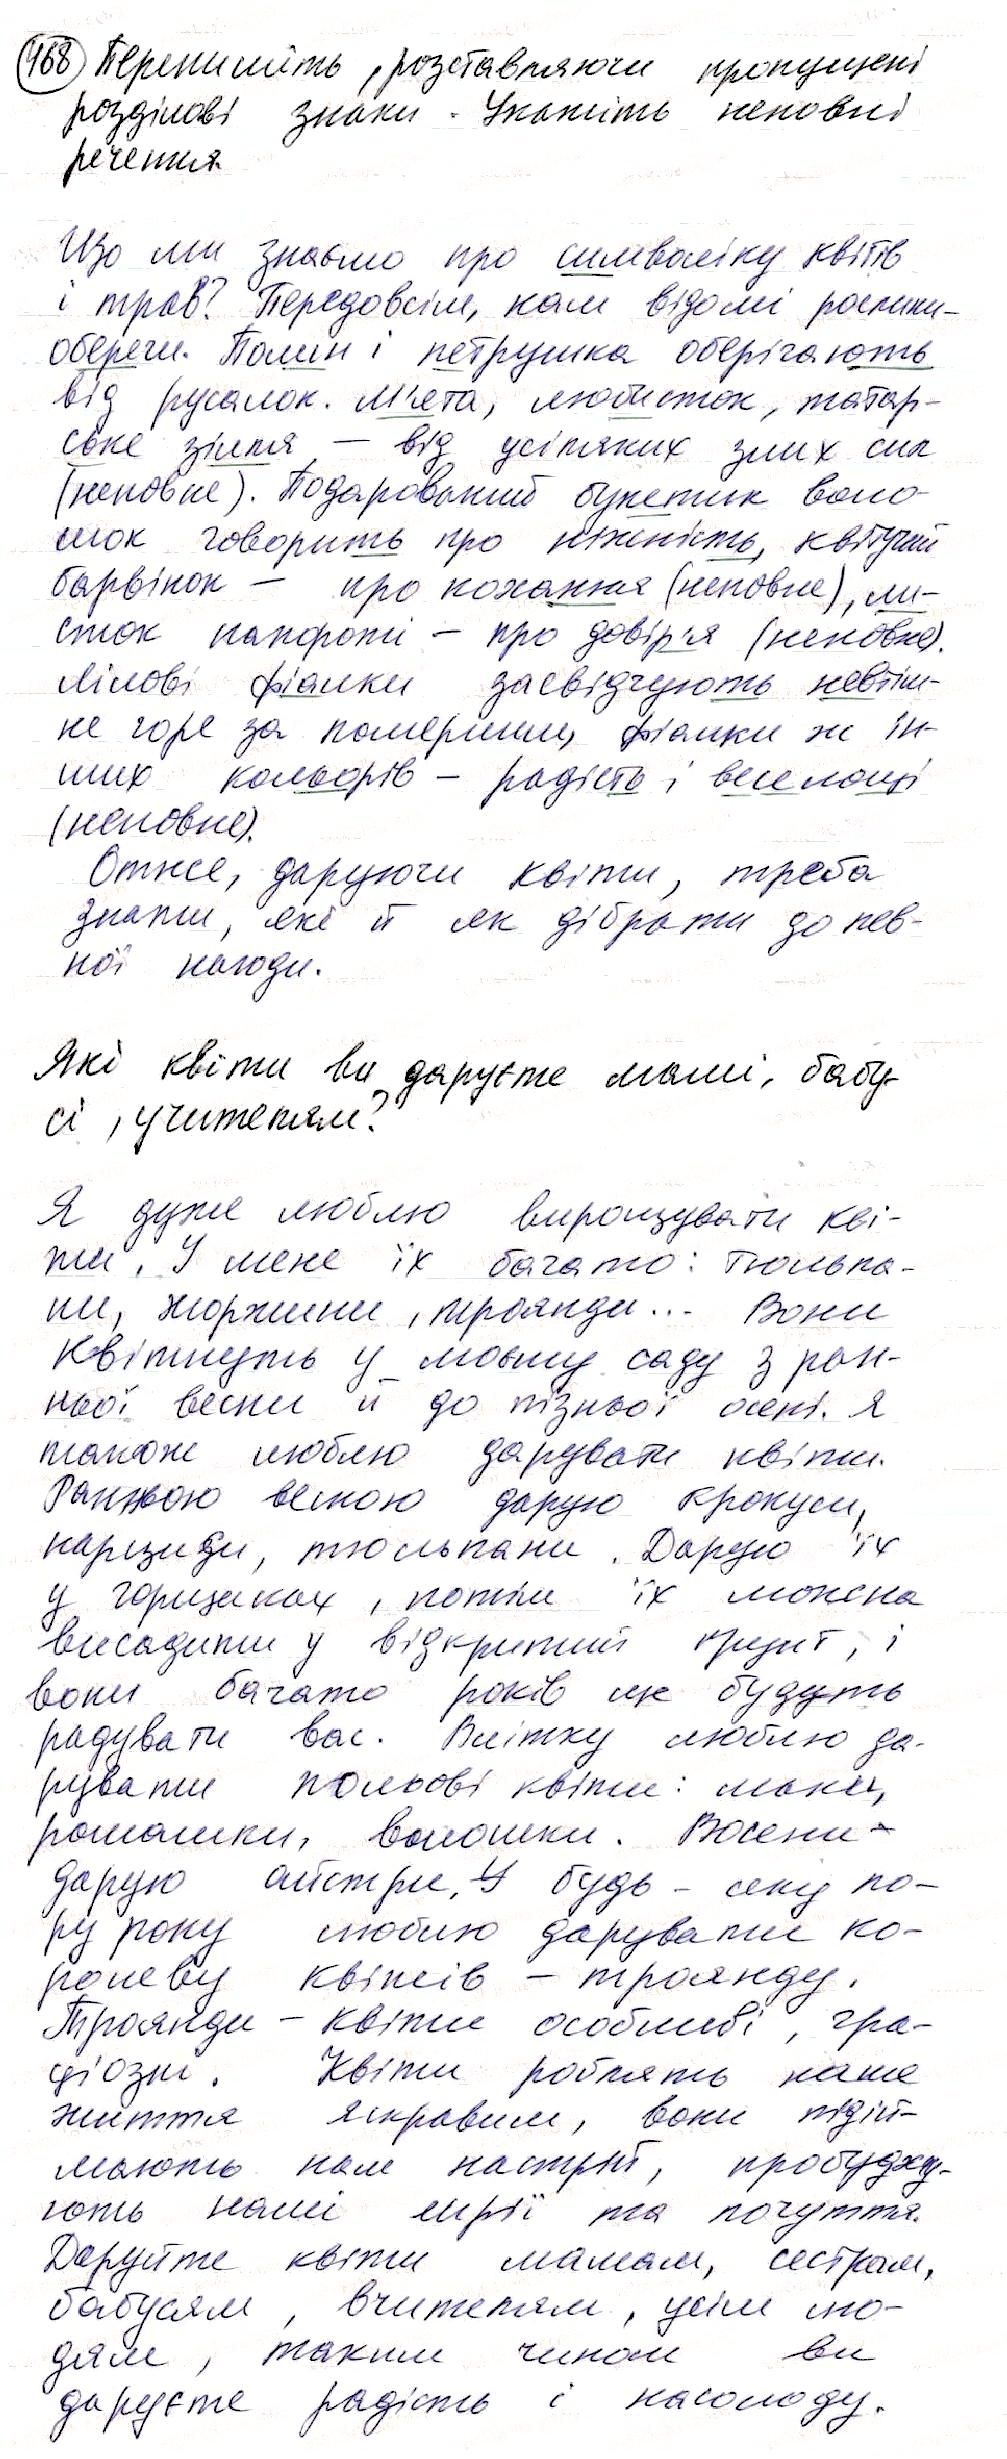 468 Перепишіть, розставляючи пропущені
розділові знаки. Укажіть неповні
речення
Що ми знаємо про символіку квітів
і трав? Передовсім, нам відомі рослини-
обереги. Полин і петрушка оберігають
від русалок. М'ята, любисток, татар-
ське зілля – від усіляких злих сил
(неповне). Подарований букетик воло-
шок говорить про ніжність, квітучий
барвінок – про кохання (неповне), ли-
сток папороті – про довір'я (неповне).
Лілові фіалки засвідчують невтіш-
не горе за померлим, фіалки ж ін-
ших кольорів – радість і веселощі
(неповне).
Отже, даруючи квіти, треба
знати, які й як дібрати до пев-
ної нагоди.
Які квіти ви даруєте мамі, бабу-
сі, учителям?
Я дуже люблю вирощувати кві-
ти. У мене їх багато: тюльпа-
ни, жоржини, троянди... Вони
квітнуть у моєму саду з ран-
ньої весни й до пізньої осені. Я
також люблю дарувати квіти.
Ранньою весною дарую крокуси,
нарциси, тюльпани. Дарую їх
у горщиках, потім їх можна
висадити у відкритий грунт, і
вони багато років ще будуть
радувати вас. Влітку люблю да-
рувати польові квіти: маки,
ромашки, волошки. Восени –
дарую айстри. У будь-яку по-
ру року люблю дарувати ко-
ролеву квітів – троянду.
Троянди – квіти особливі, гра-
ціозні. Квіти роблять наше
життя яскравим, вони підій-
мають нам настрій, пробуджу-
ють наші мрії та почуття.
Даруйте квіти мамам, сестрам,
бабусям, вчителям, усім лю-
дям, таким чином ви
даруєте радість і насолоду.